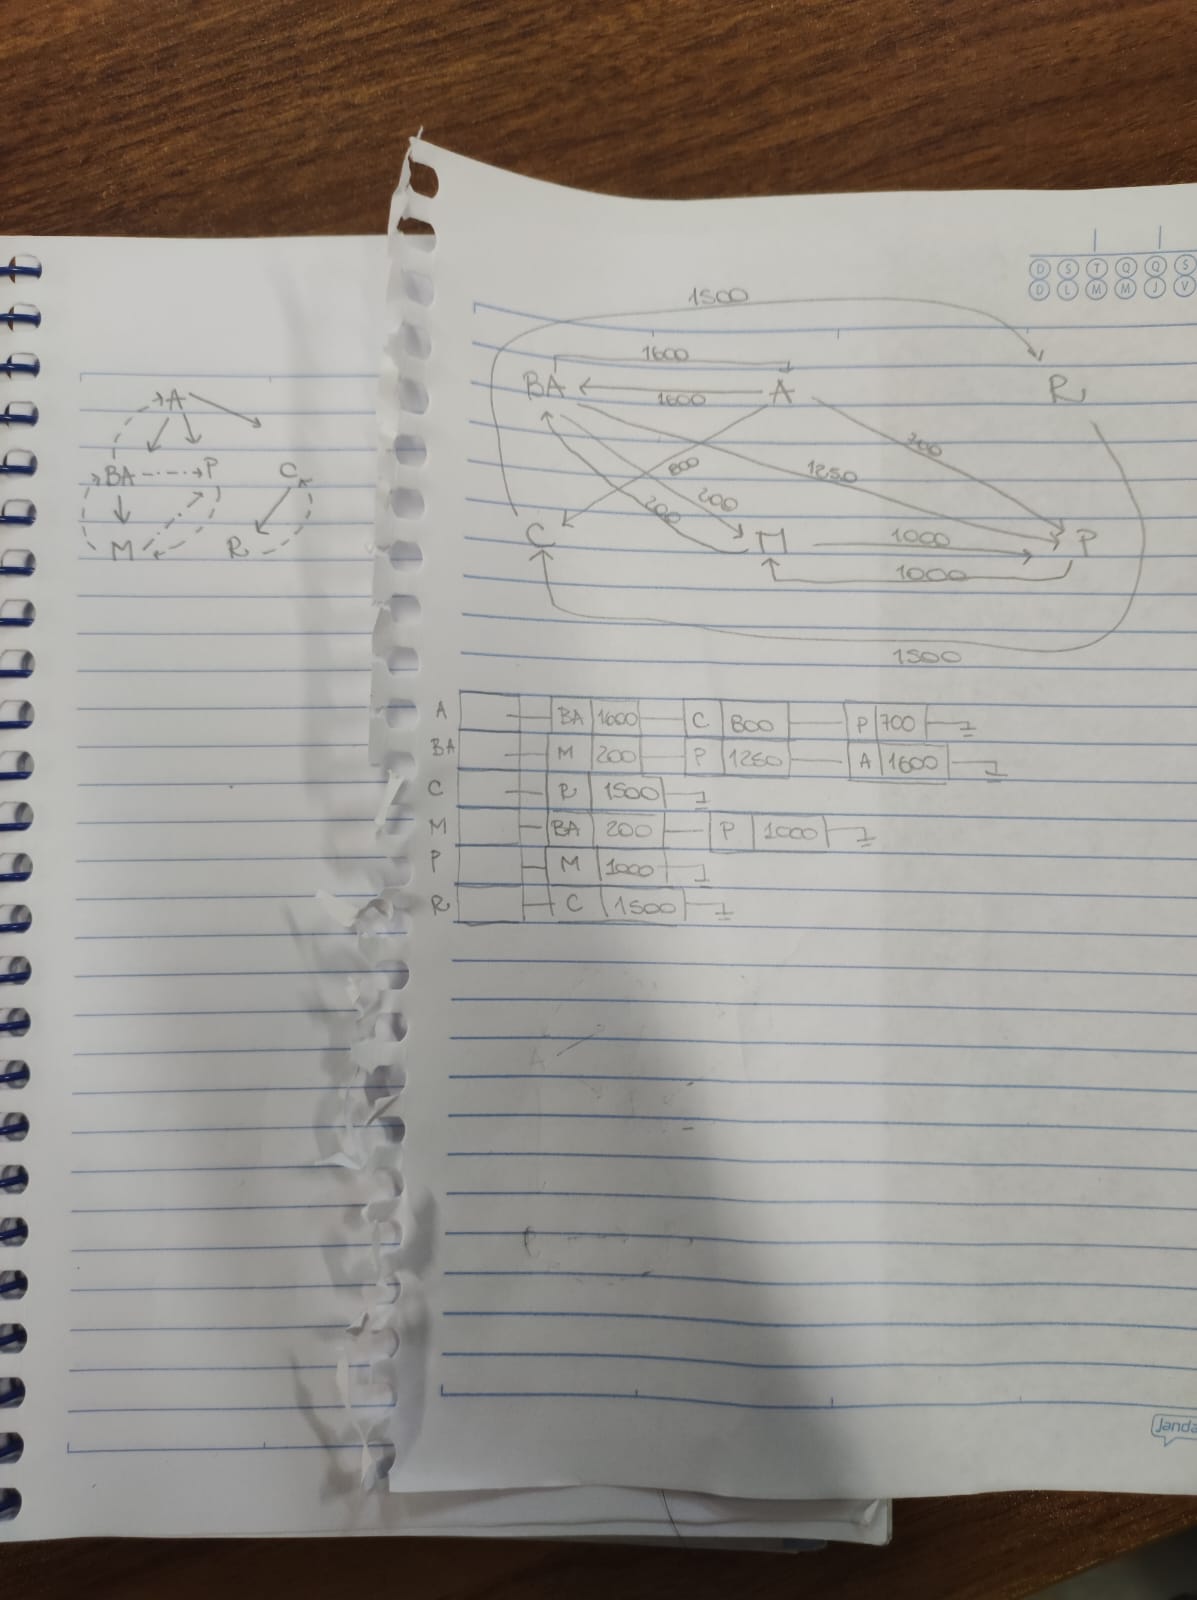 D S T Q Q S
D L M M J V
1500
1600
BA A R
1600
700
800 1250
200
200
C M 1000 P
1000
1500
A BA 1600 C 800 P 700
BA M 200 P 1250 A 1600
C R 1500
M BA 200 P 1000
P M 1000
R C 1500
A
BA P C
M R
Janda